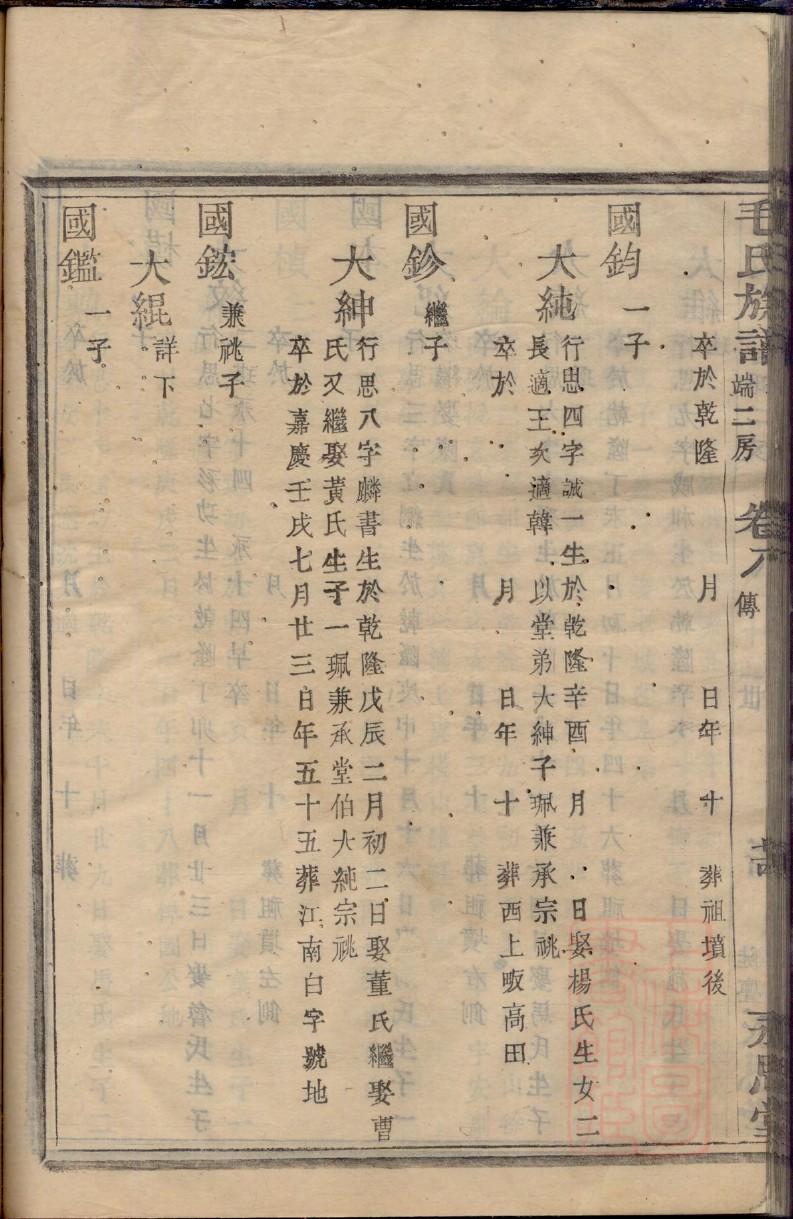 毛氏族譜 端二房 卷八 傳 永思堂
卒於乾隆 月 日年 十 葬祖墳後
國鈞 一子
大純 行思四字誠一生於乾隆辛酉 月 日娶楊氏生女二
長適王次適韓 以堂弟大紳子珮兼承宗祧
卒於 月 日年 十 葬西上畈高田
國鉁 繼子
大紳 行思八字麟書生於乾隆戊辰二月初二日娶董氏繼娶曹
氏又繼娶黃氏生子一珮兼承堂伯大純宗祧
卒於嘉慶壬戌七月廿三日年五十五葬江南白字號地
國鋐 兼祧子
大緄 詳下
國鑑 一子